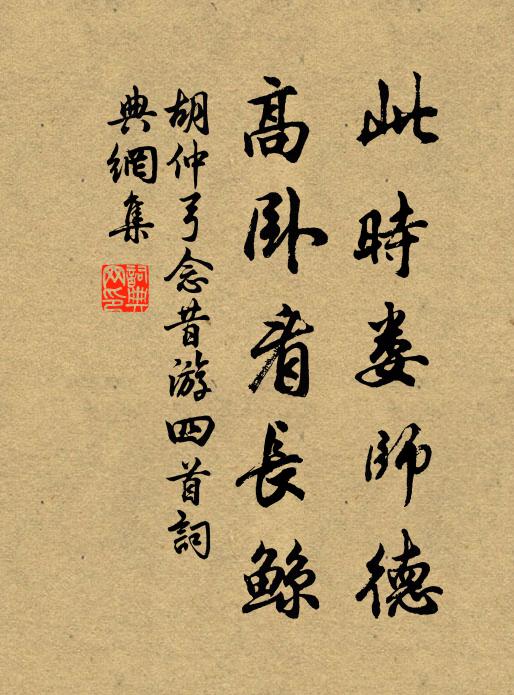 此時娄師德
高卧看長鲸
胡仲弓念昔游四首詞
典網集
詞典
网印